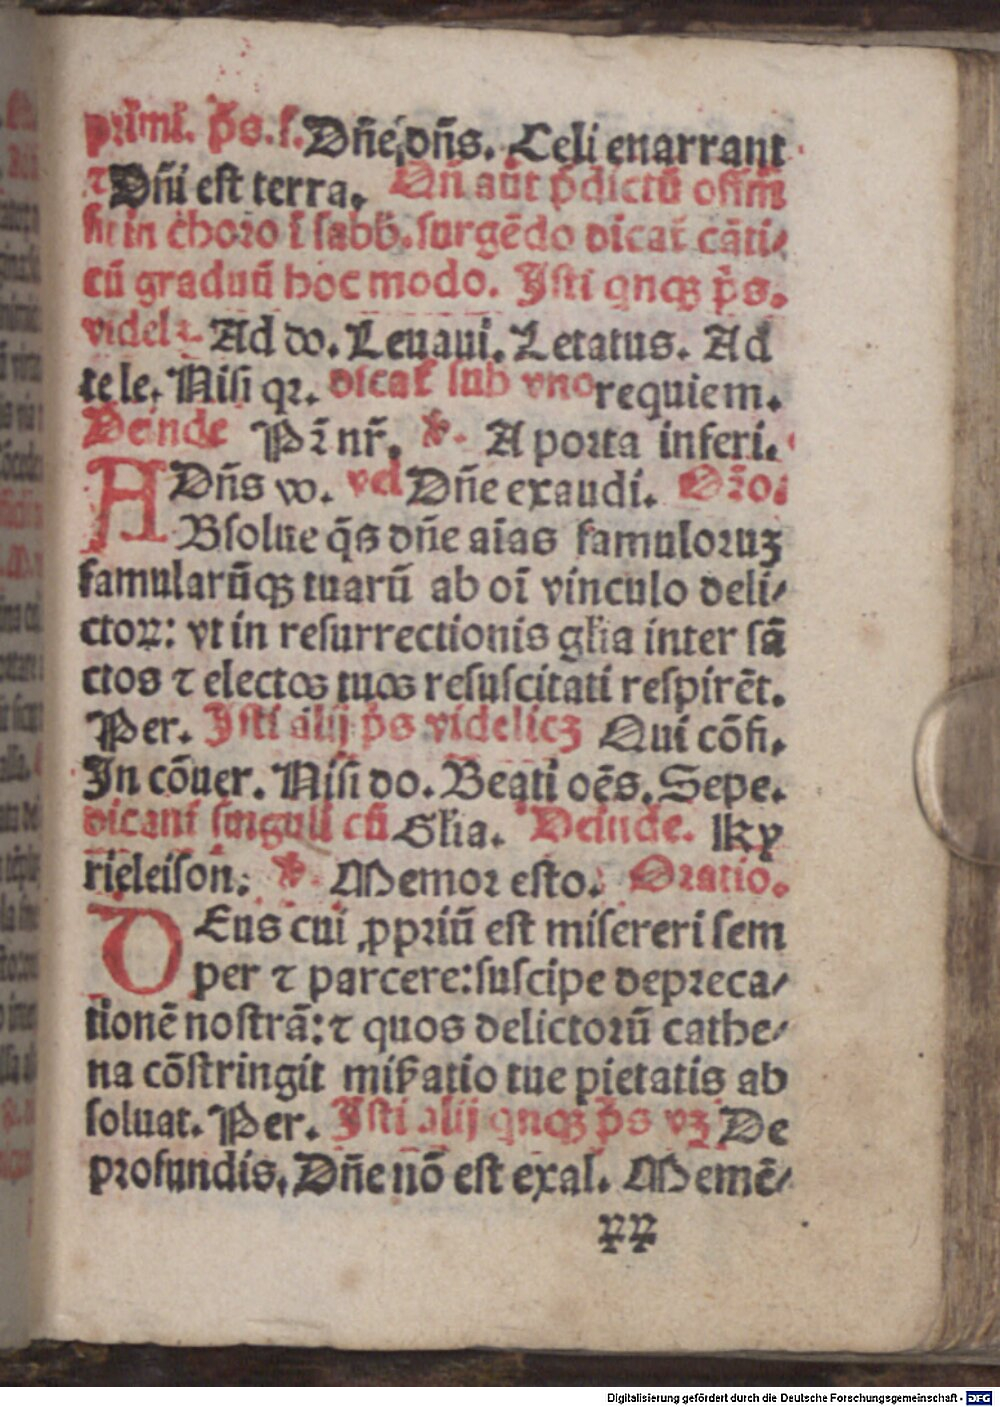 primi. p̄s. s. Dn̄e dn̄s. Celi enarrant
⁊ Dn̄i est terra. Qn̄ aūt p̄dictū offm̄
fit in choro ī sabb̄. surgēdo dicāt cāti⸗
cū graduū hoc modo. Isti qnqꝫ p̄s.
videlꝫ. Ad do. Leuaui. Letatus. Ad
te le. Nisi qꝛ. dicāt sub vno requiem.
Deinde Pr̄ nr̄. ℣. A porta inferi.
Dn̄s vo. vel Dn̄e exaudi. Oꝛ̄o.
ABsolue q̄s dn̄e aīas famuloꝛuꝫ
famularūqꝫ tuarū ab oī vinculo deli⸗
ctoꝝ: vt in resurrectionis gl̄ia inter sā
ctos ⁊ electos tuos resuscitati respirēt.
Per. Isti alij p̄s videlicꝫ Qui cōfi.
In cōuer. Nisi do. Beati oēs. Sepe.
dicant singuli cū Gl̄ia. Deinde. Ky
rieleison. ℣. Memoꝛ esto. Oratio.
DEus cui ꝓpꝛiū est misereri sem
per ⁊ parcere: suscipe depꝛeca⸗
tionē nostrā: ⁊ quos delictoꝛū cathe⸗
na cōstringit miẜatio tue pietatis ab
soluat. Per. Isti alij qnqꝫ p̄s vꝫ De
pꝛofundis. Dn̄e nō est exal. Memē⸗
Digitalisierung gefördert durch die Deutsche Forschungsgemeinschaft - DFG